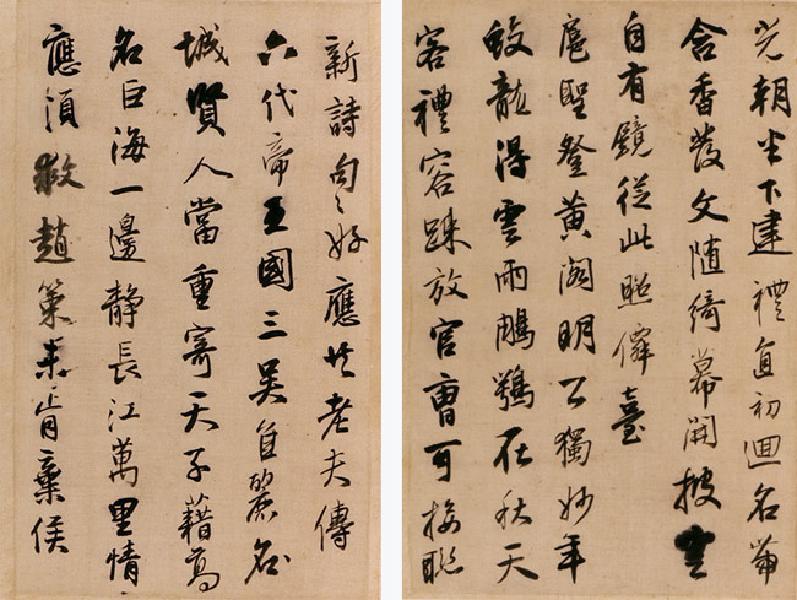 光朝坐下建禮直初迴名帶
含香發文隨綺幕開披雲
自有鏡從此照僊臺
扈聖登黃閣明公獨妙年
蛟龍得雲雨鵰鶚在秋天
客禮容踈放官曹可接聯
新詩句々好應共老夫傳
六代帝王國三吴自麗名
城賢人當重寄天子藉高
名巨海一邊靜長江萬里情
應須救趙策未肯棄侯